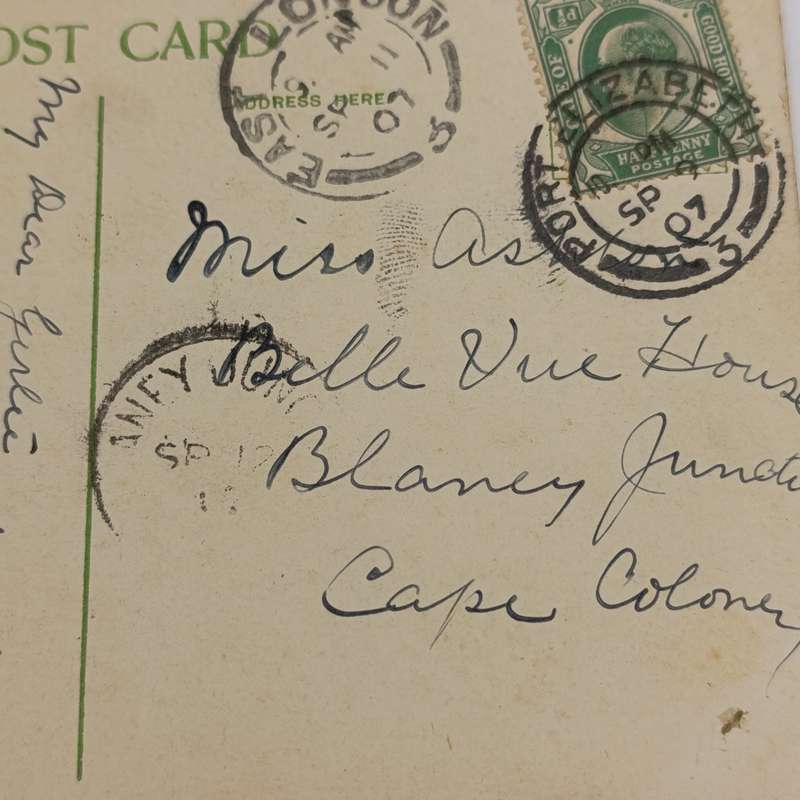 POST CARD
ADDRESS HERE
EAST LONDON
9 AM
SP 11
07
3
½d
CAPE OF GOOD HOPE
HALF PENNY
POSTAGE
PORT ELIZABETH
PM
SP
07
3
My Dear Gertie
Miss Ashton
Belle Vue House
Blaney Juncti
Cape Coloney
ANEY JUNC
SP 12